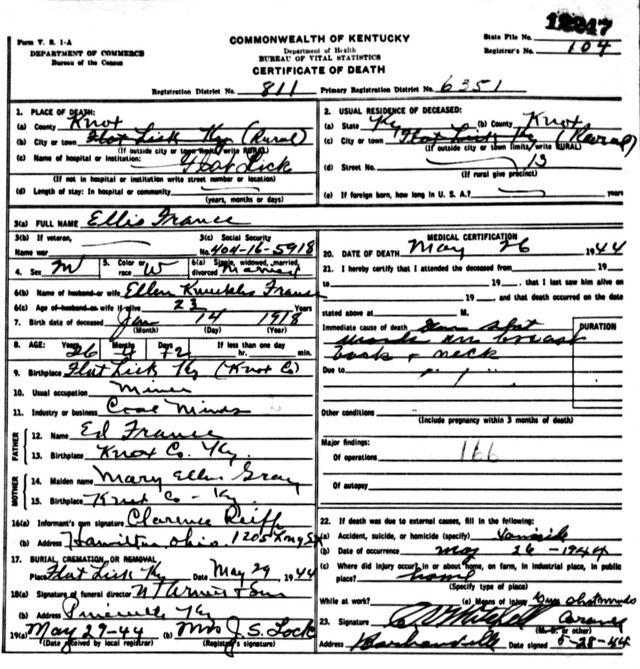 12247
Form V. S. 1-A
DEPARTMENT OF COMMERCE
Bureau of the Census
COMMONWEALTH OF KENTUCKY
Department of Health
BUREAU OF VITAL STATISTICS
CERTIFICATE OF DEATH
State File No.
Registrar's No. 104
Registration District No. 811 Primary Registration District No. 6351
1. PLACE OF DEATH:
(a) County Knox
(b) City or town Flat Lick Ky (Rural)
(If outside city or town limits, write RURAL)
(c) Name of hospital or institution: Flat Lick
(If not in hospital or institution write street number or location)
(d) Length of stay: In hospital or community
(years, months or days)
2. USUAL RESIDENCE OF DECEASED:
(a) State Ky (b) County Knox
(c) City or town Flat Lick Ky (Rural)
(If outside city or town limits, write RURAL)
(d) Street No. 13
(If rural give precinct)
(e) If foreign born, how long in U. S. A.? years
3(a) FULL NAME Ellis France
3(b) If veteran,
Name war
3(c) Social Security
No. 404-16-5918
4. Sex M 5. Color or race W 6(a) Single, widowed, married, divorced Married
6(b) Name of husband or wife Ellen Knuckles France
6(c) Age of husband or wife if alive 23 Years
7. Birth date of deceased Jan 14 1918
(Month) (Day) (Year)
8. AGE: Years Months Days If less than one day
26 hr. min.
9. Birthplace Flat Lick Ky (Knox Co)
10. Usual occupation Miner
11. Industry or business Coal Minds
FATHER
12. Name Ed France
13. Birthplace Knox Co. Ky.
MOTHER
14. Maiden name Mary Ellis Gray
15. Birthplace Knox Co - Ky.
16(a) Informant's own signature Clarence Reiff
(b) Address Hamilton Ohio. 1205
17. BURIAL, CREMATION, OR REMOVAL
Place Flat Lick Ky Date May 29, 1944
18(a) Signature of funeral director & Son
(b) Address Pineville Ky
19(a) May 29-44 (b) Mrs J. S. Lock
(Date received by local registrar) (Registrar's signature)
MEDICAL CERTIFICATION
20. DATE OF DEATH May 26 1944
21. I hereby certify that I attended the deceased from 19
to 19 , that I last saw him alive on
19 , and that death occurred on the date
stated above at M.
Immediate cause of death Gun shot
wounds on breast
back & neck
DURATION
Due to
Other conditions
(Include pregnancy within 3 months of death)
Major findings:
Of operations 166
Of autopsy
22. If death was due to external causes, fill in the following:
(a) Accident, suicide, or homicide (specify)
(b) Date of occurrence May 26-1944
(c) Where did injury occur in or about home, on farm, in industrial place, in public
place? home
(Specify type of place)
While at work? (e) Means of injury Gun shot wounds
23. Signature Mitchell Coroner
(M. D. or other)
Address Barbourville Date signed 5-28-44